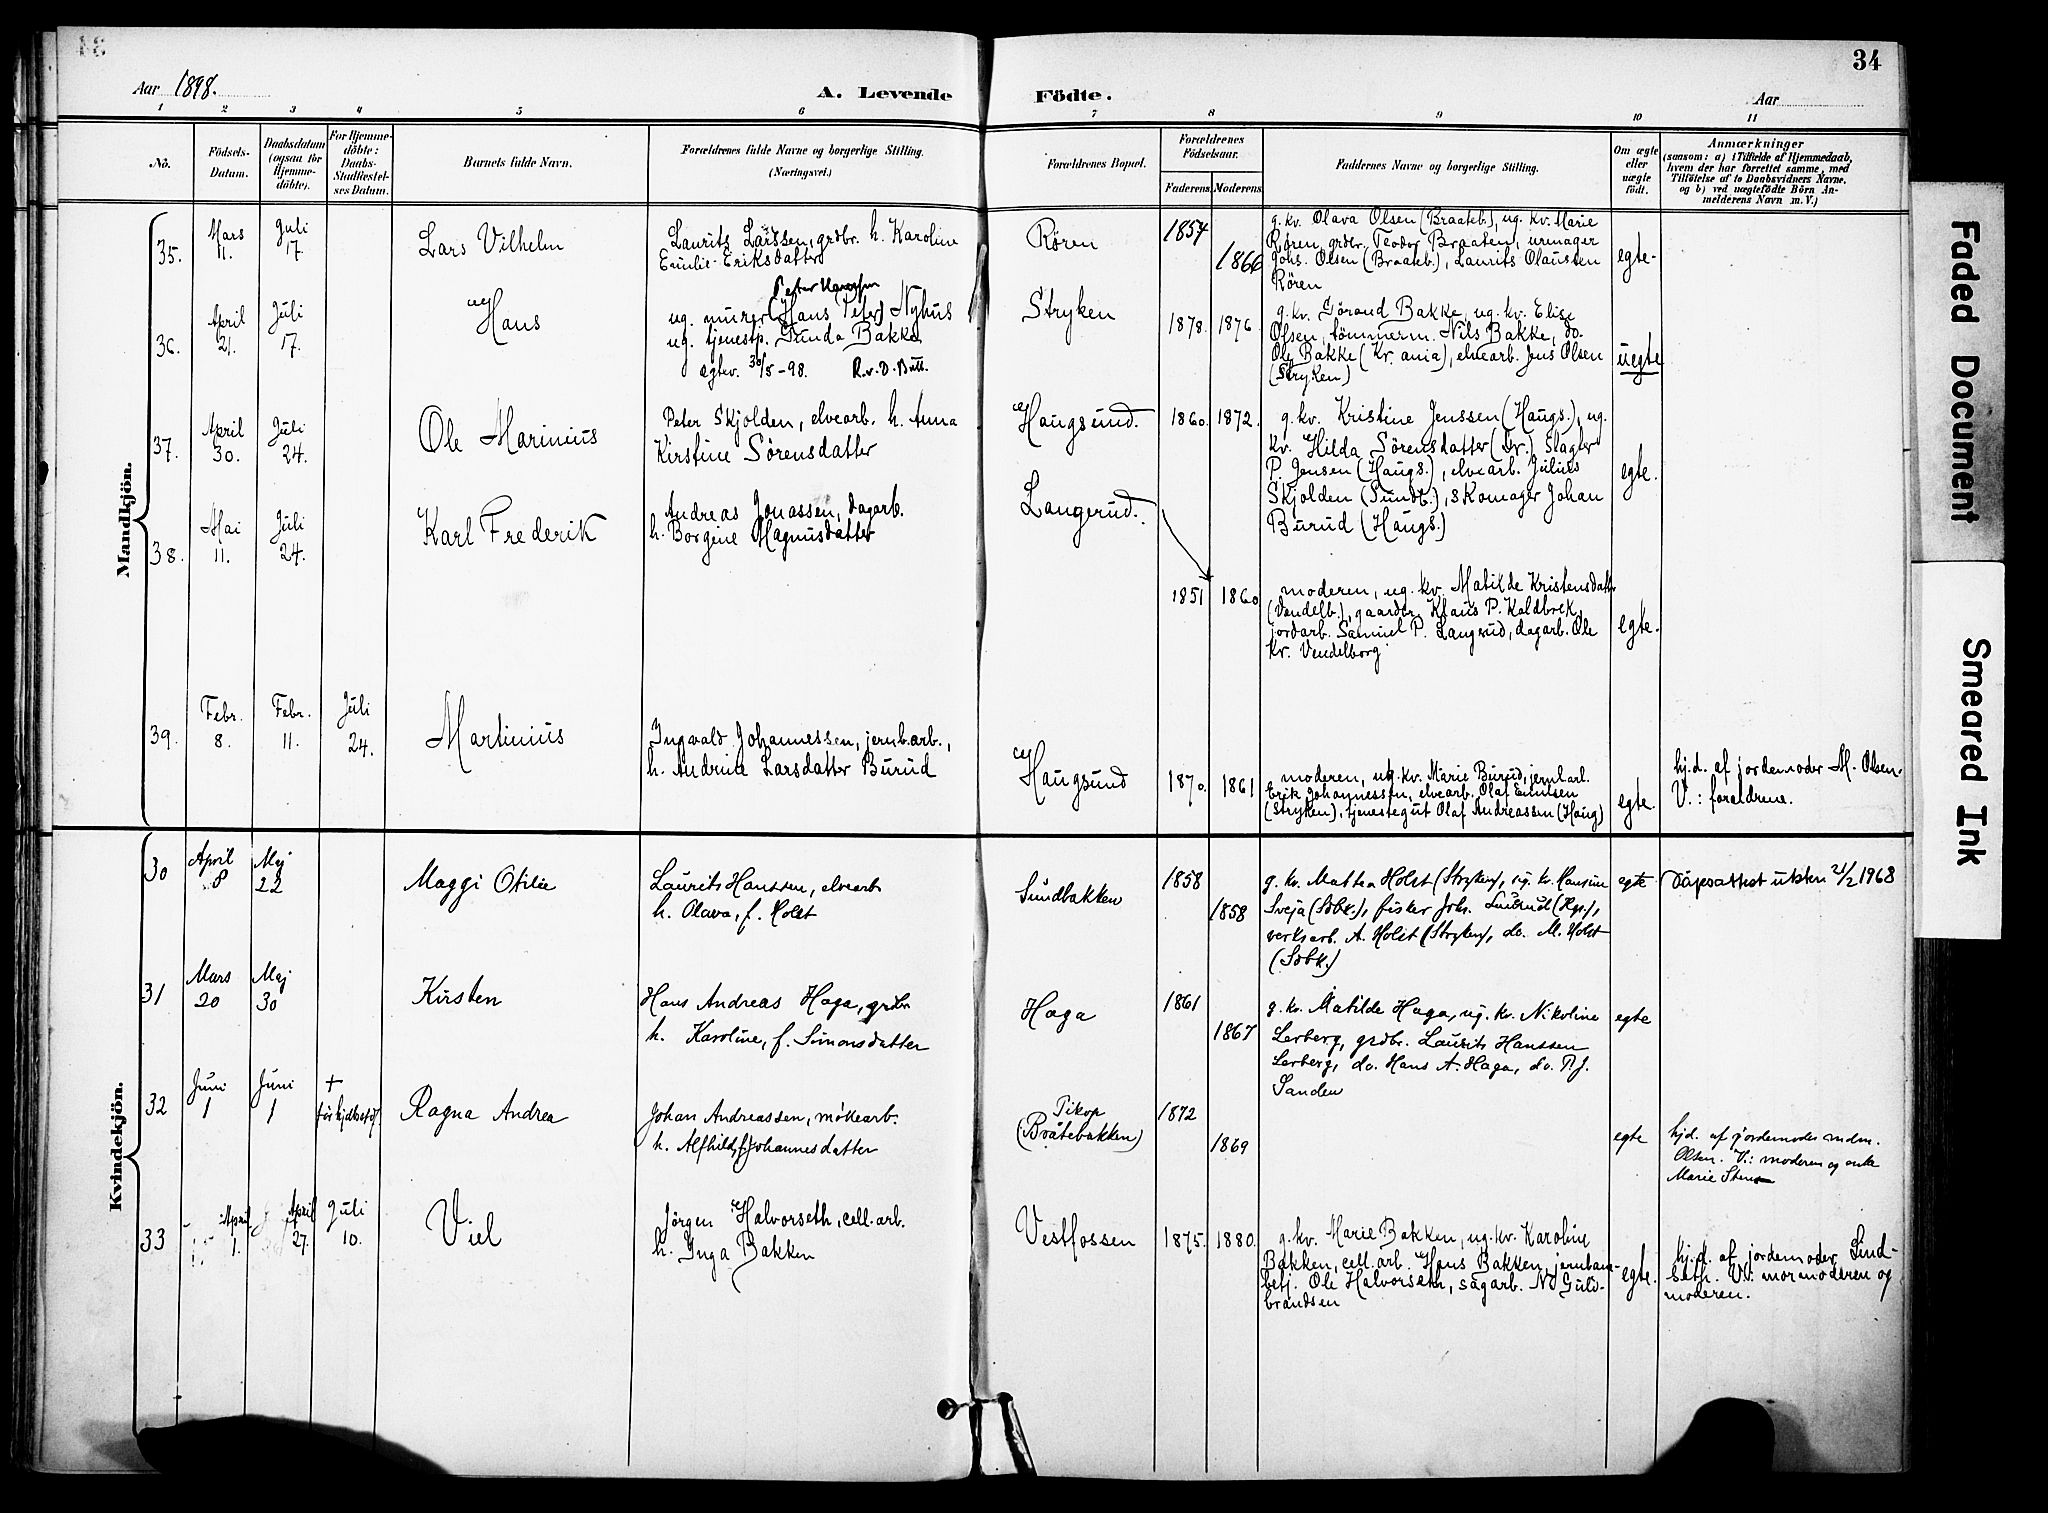 34
Aar 1898.
A. Levende Födte.
Aar
1 2 3 4 5 6 7 8 9 10 11
No.
Födsels-Datum.
Daabsdatum (ogsaa for Hjemme-döbte).
For Hjemme-döbte: Daabs-Stadfæstelses Datum.
Barnets fulde Navn.
Forældrenes fulde Navne og borgerlige Stilling.
(Næringsvei.)
Forældrenes Bopæl.
Forældrenes Födselsaar.
Faderens. Moderens.
Faddernes Navne og borgerlige Stilling.
Om ægte eller uægte födt.
Anmærkninger
(saasom: a) i Tilfælde af Hjemmedaab,
hvem der har forrettet samme, med
Tilföielse af to Daabsvidners Navne,
og b) ved uægtefödte Börn An-
melderens Navn m. V.)
Mandkjön.
35. Mars 11. Juli 17. Lars Vilhelm
Laurits Larssen, grdbr. h. Karoline
Emilie Eriksdatter
Røren
1857 1866
g. kv. Olava Olsen (Braateb.), ug. kv. Marie
Røren, grdbr. Teodor Braaten, urmager
Johs. Olsen (Braateb.), Laurits Olaussen
Røren
egte.
36. April 21. Juli 17. Hans
Peter
ug. murer (Hans Peter) Nyhus
ug. tjenestp. Gunda Bakke
egtev. 30/5-98. R.v.D. Butt.
Stryken
1878. 1876.
g. kv. Gørand Bakke, ug. kv. Elise
Olsen, tömmerm. Nils Bakke, do.
Ole Bakke (Kr.ania), elvearb. Jens Olsen
(Stryken)
uegte
37. April 30. Juli 24. Ole Marinius
Peter Skjolden, elvearb. h. Anna
Kirstine Sörensdatter
Haugsund.
1860. 1872.
g. kv. Kristine Jenssen (Haugs.), ug.
kv. Hilda Sörensdatter (Dr.), slagter
P. Jensen (Haugs.), elvearb. Julius
Skjolden (Sundb.), skomager Johan
Burud (Haugs.)
egte.
38. Mai 11. Juli 24. Karl Frederik
Andreas Jonassen, dagarb.
h. Borgine Magnusdatter
Langerud.
1851 1860
moderen, ug. kv. Matilde Kristensdatter
(Vendelb.), gaardbr. Klaus P. Kaldbrek,
jordarb. Samuel P. Langrud, dagarb. Ole
Kr. Vendelborg
egte.
39. Febr. 8. Febr. 11. Juli 24. Martinius
Ingvald Johannessen, jernb.arb.,
h. Andrine Larsdatter Burud
Haugsund
1870. 1861
moderen, ug. kv. Marie Burud, jernb.arb.
Erik Johannessen, elvearb. Olaf Emilsen
(Stryken), tjenestegut Olaf Andreassen (Haug)
egte.
hj.d. af jordemoder M. Olsen.
V.: forældrene.
Kvindekjön.
30 April 8 Maj 22 Maggi Otilie
Laurits Hanssen, elvearb
h. Olava, f. Holst
Sundbakken
1858 1858
g. kv. Mathea Holst (Stryken), ug. kv. Hansine
Sveja (Sdbk.), fisker Joh. (Hgs.),
verksarb. A. Holst (Stryken), do. M. Holst
(Sdbk.)
egte
Dåpsattest utsten 21/2 1968
31 Mars 20 Maj 30 Kirsten
Hans Andreas Haga, grdbr.
h. Karoline, f. Simonsdatter
Haga
1861 1867
g. kv. Matilde Haga, ug. kv. Nikoline
Lerberg, grdbr. Laurits Hanssen
Lerberg, do. Hans A. Haga, do. P. J.
Sanden
egte
32 Juni 1 Juni 1 + Ragna Andrea
Johan Andreassen, mökearb.
h. Alfhild, f. Johannesdatter
Pikop
(Bråtebakken)
1872 1869
egte
hj.d. af jordemoder mdm.
Olsen. V.: moderen og enke
Marie
33 April 1. April 27. Juli 10. Viel
Jörgen Halvorseth, cell.arb.
h. Inga Bakken
Vestfossen
1875. 1880.
g. kv. Marie Bakken, ug. kv. Karoline
Bakken, cell.arb. Hans Bakken, jernban-
betj. Ole Halvorseth, sagarb. N. Guld-
brandsen
egte.
hj.d. af jordemoder Lind-
seth. V.: mormoderen og
moderen.
Faded Document
Smeared Ink